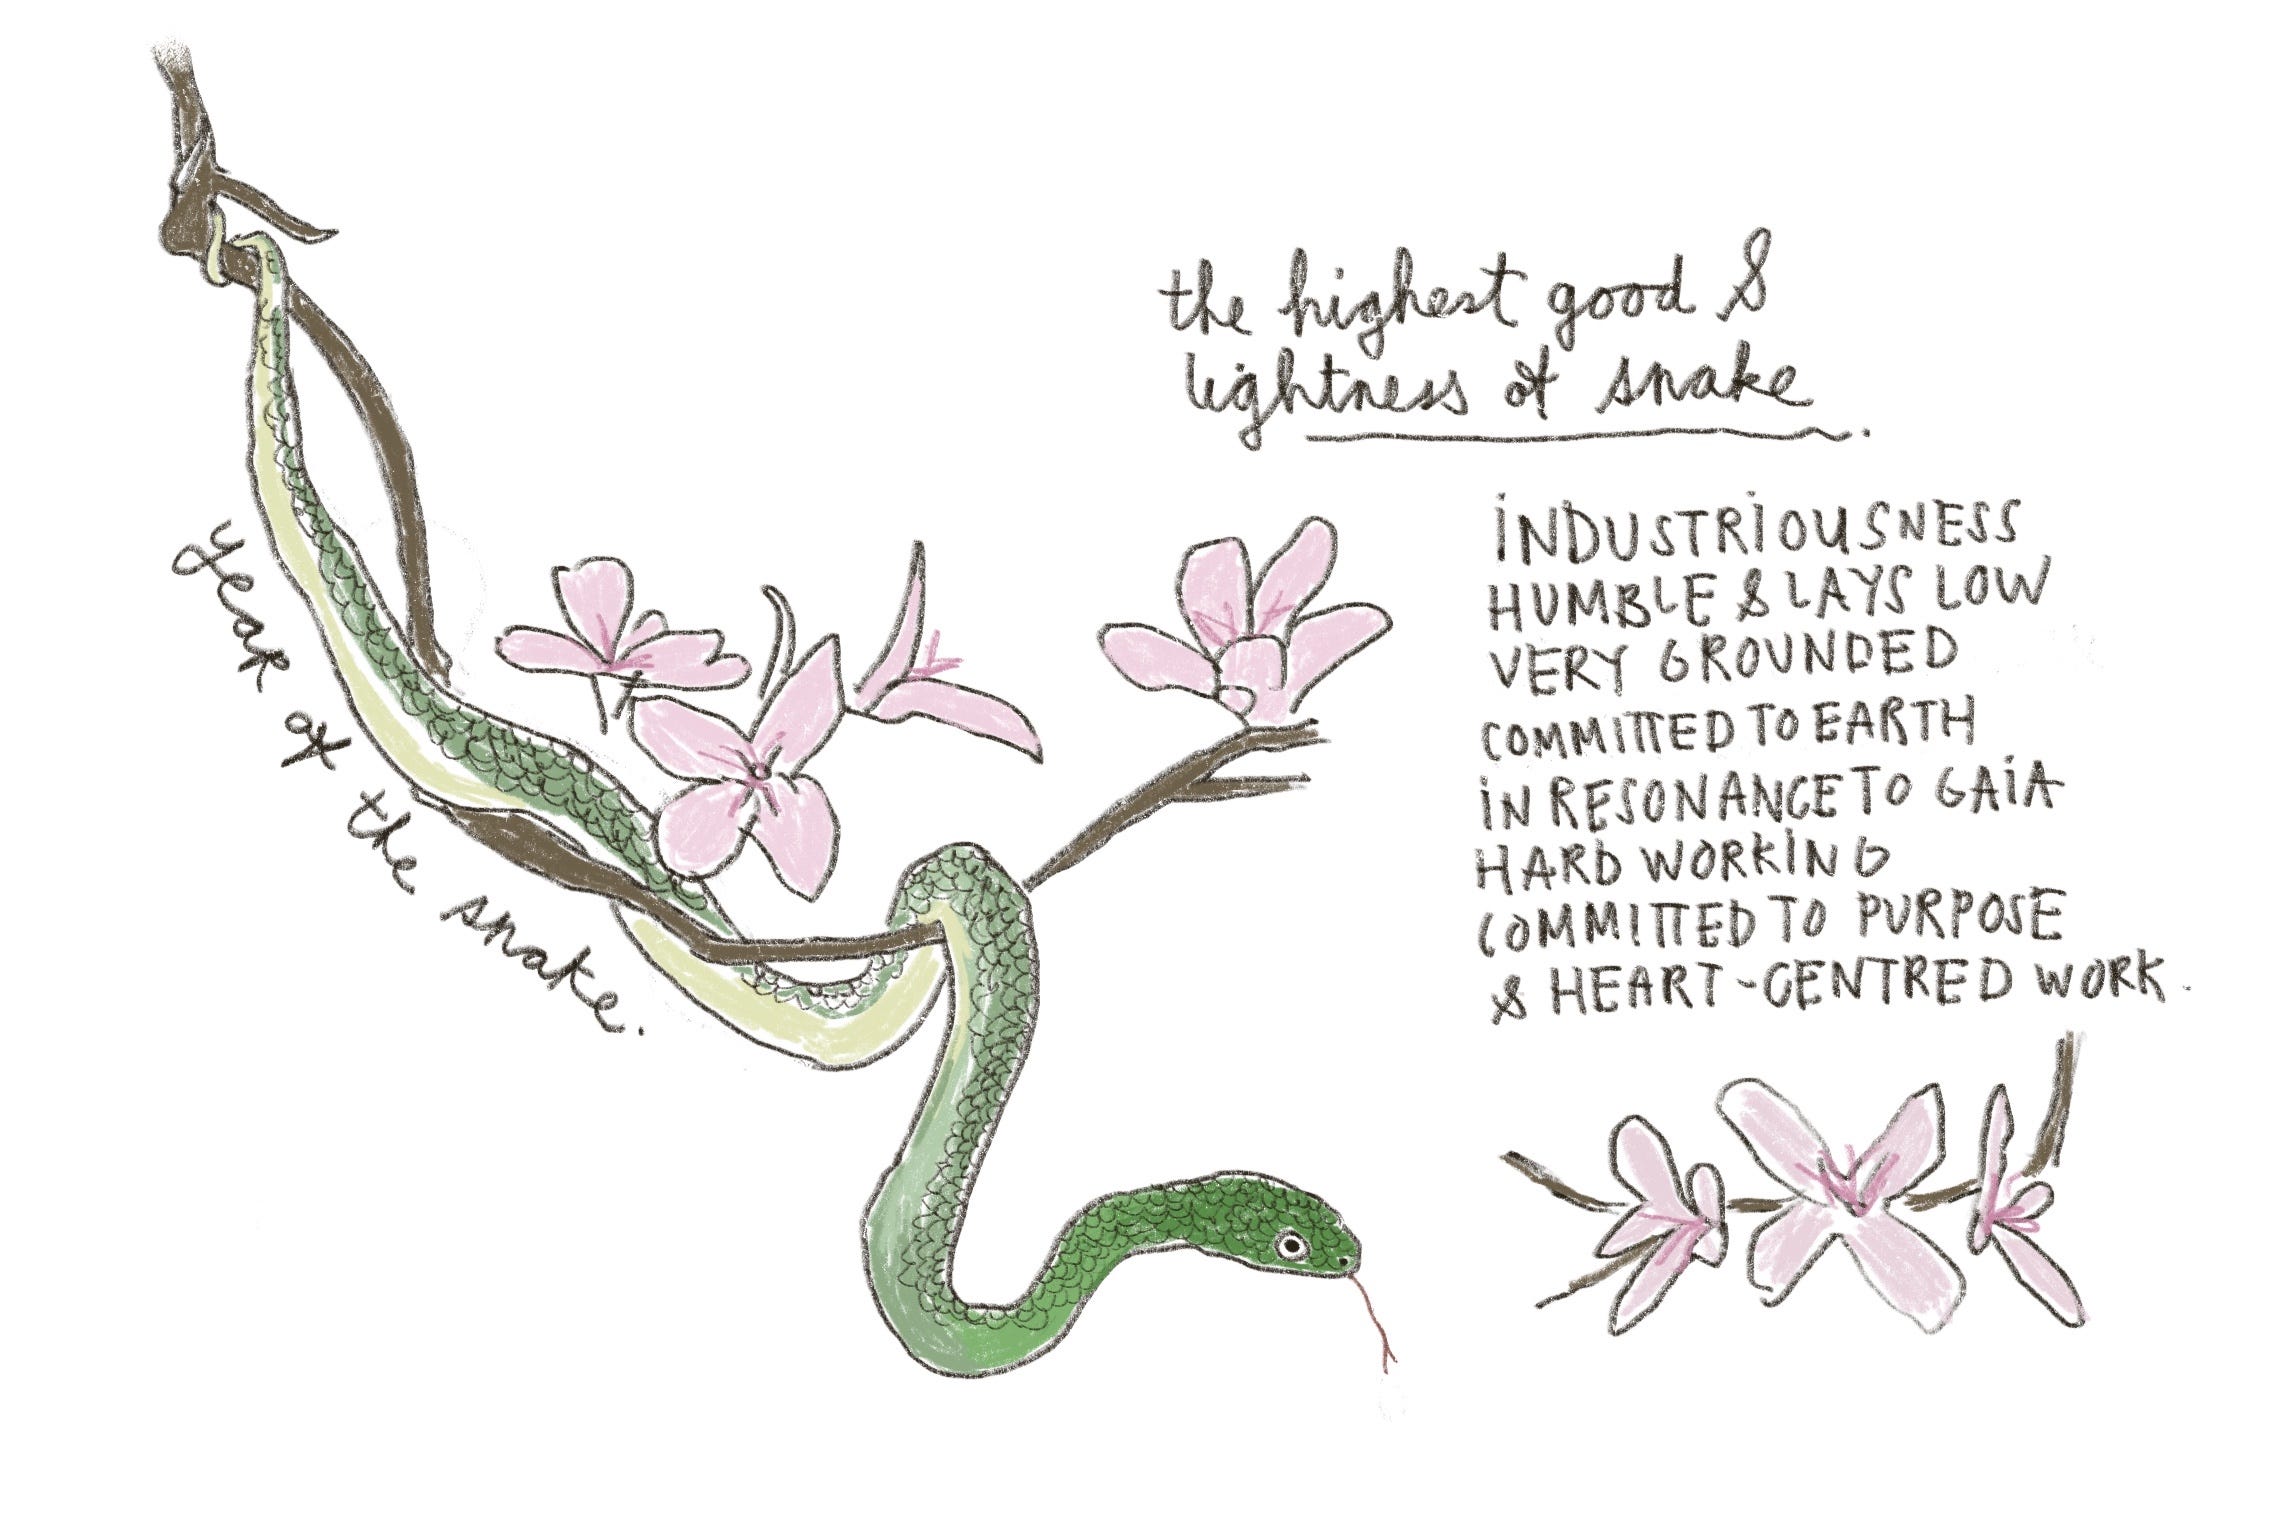 the highest good &
lightness of snake.
INDUSTRIOUSNESS
HUMBLE & LAYS LOW
VERY GROUNDED
COMMITTED TO EARTH
IN RESONANCE TO GAIA
HARD WORKING
COMMITTED TO PURPOSE
& HEART-CENTRED WORK.
year of the snake.